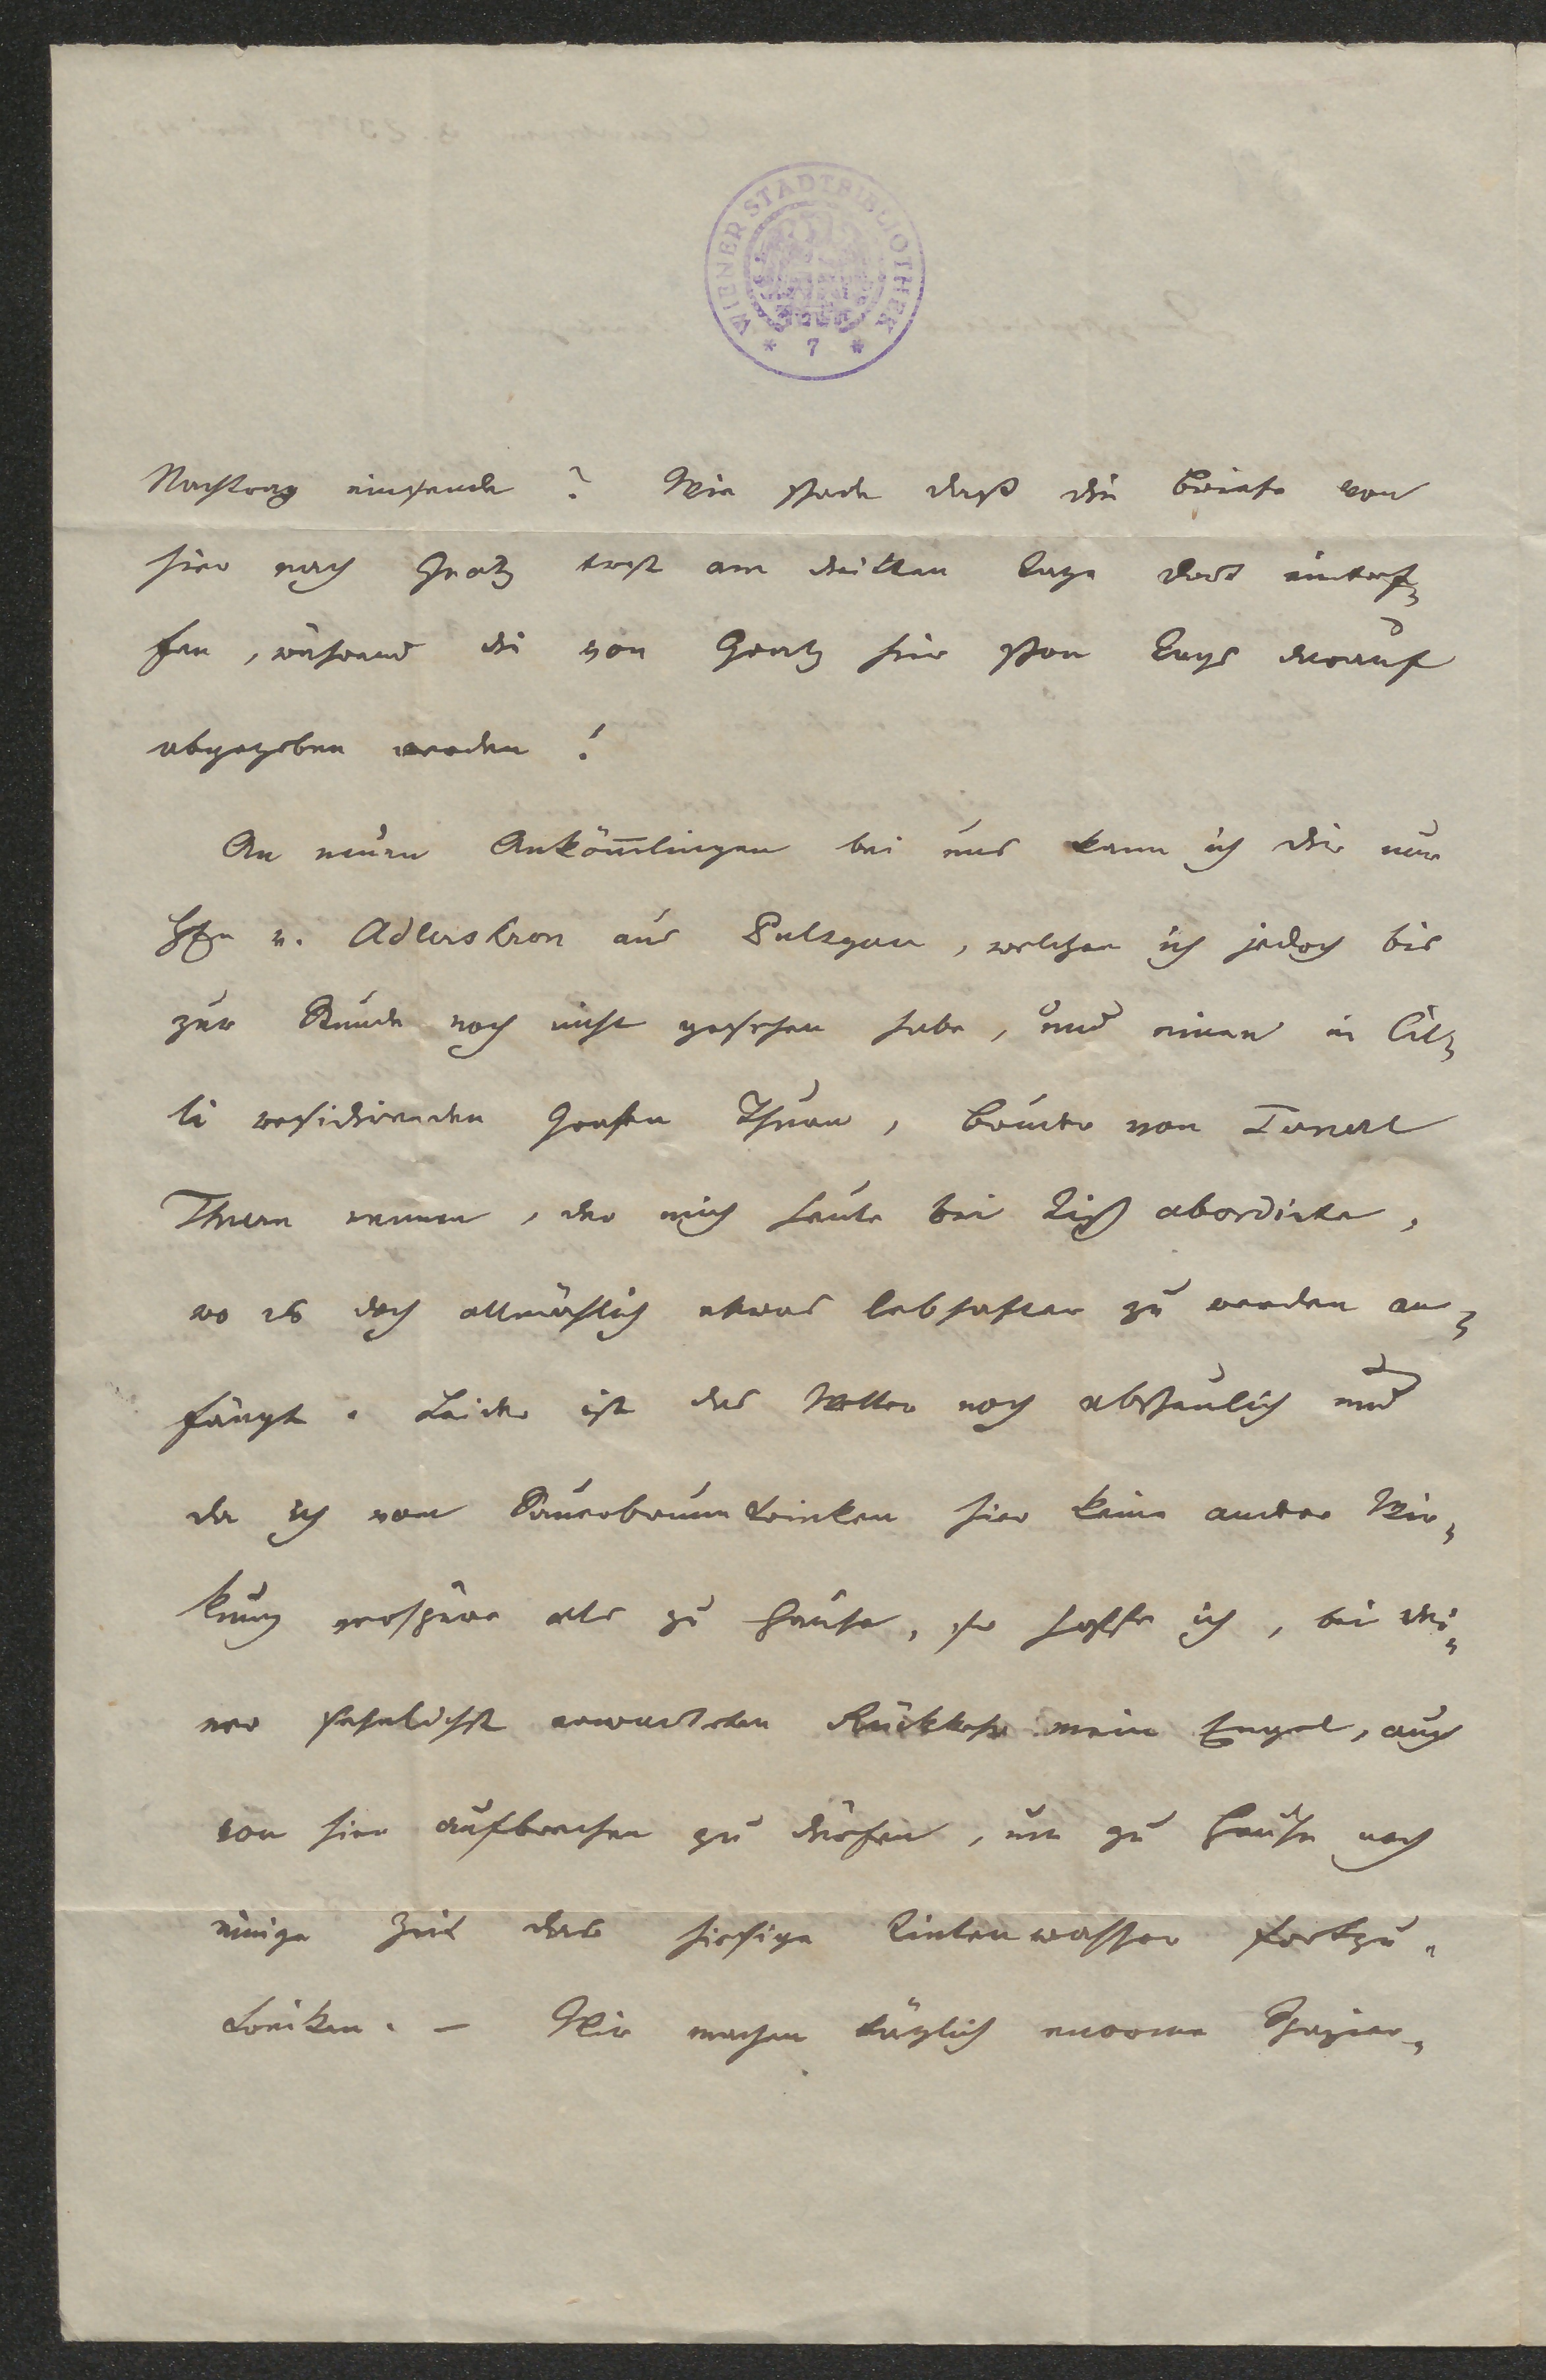 WIENER STADTBIBLIOTHEK
* 7 *
Nachtrag einsende? Wie schade daß die Briefe von
hier nach Gratz erst am dritten Tage dort eintref-
fen, während die von Gratz hier schon Tags darauf
abgegeben werden!
An neuen Ankömlingen bei uns kann ich dir nur
v. Adlerskron aus , welchen ich jedoch bis
zur Stunde noch nicht gesehen habe, und einen in Cil-
li residirenden Grafen Thurn, Bruder von
Thurn nennen, der mich heute bei Tisch abordirte,
wo es doch allmählich etwas lebhafter zu werden an-
fängt. Leider ist das Wetter noch abscheulich und
da ich vom Sauerbrunntrinken hier keine andere Wir-
kung verspüre als zu Hause, so hoffe ich, bei dei-
ner sehnlichst erwarteten Rückkehr mein Engel, auch
von hier aufbrechen zu dürfen, um zu Hause noch
einige Zeit das hiesige Tintenwasser fortzu-
trinken. – Wir machen täglich enorme Spazier-